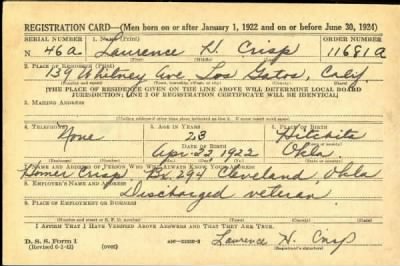 REGISTRATION CARD—(Men born on or after January 1, 1922 and on or before June 30, 1924)
SERIAL NUMBER 1. NAME (Print) ORDER NUMBER
N. 46a Laurence H. Crisp 11681a
(First) (Middle) (Last)
2. PLACE OF RESIDENCE (Print)
139 Whitney Ave Los Gatos, Calif.
[THE PLACE OF RESIDENCE GIVEN ON THE LINE ABOVE WILL DETERMINE LOCAL BOARD
JURISDICTION; LINE 2 OF REGISTRATION CERTIFICATE WILL BE IDENTICAL]
3. MAILING ADDRESS
4. TELEPHONE 5. AGE IN YEARS 6. PLACE OF BIRTH
None 23 Hitchita
DATE OF BIRTH
Apr. 23 1922 Okla.
7. NAME AND ADDRESS OF PERSON WHO WILL ALWAYS KNOW YOUR ADDRESS
Homer Crisp, Bx. 294 Cleveland, Okla
8. EMPLOYER'S NAME AND ADDRESS
Discharged veteran
9. PLACE OF EMPLOYMENT OR BUSINESS
I AFFIRM THAT I HAVE VERIFIED ABOVE ANSWERS AND THAT THEY ARE TRUE.
D. S. S. Form 1
(Revised 6-9-42) (over) Laurence H. Crisp
(Registrant's signature)